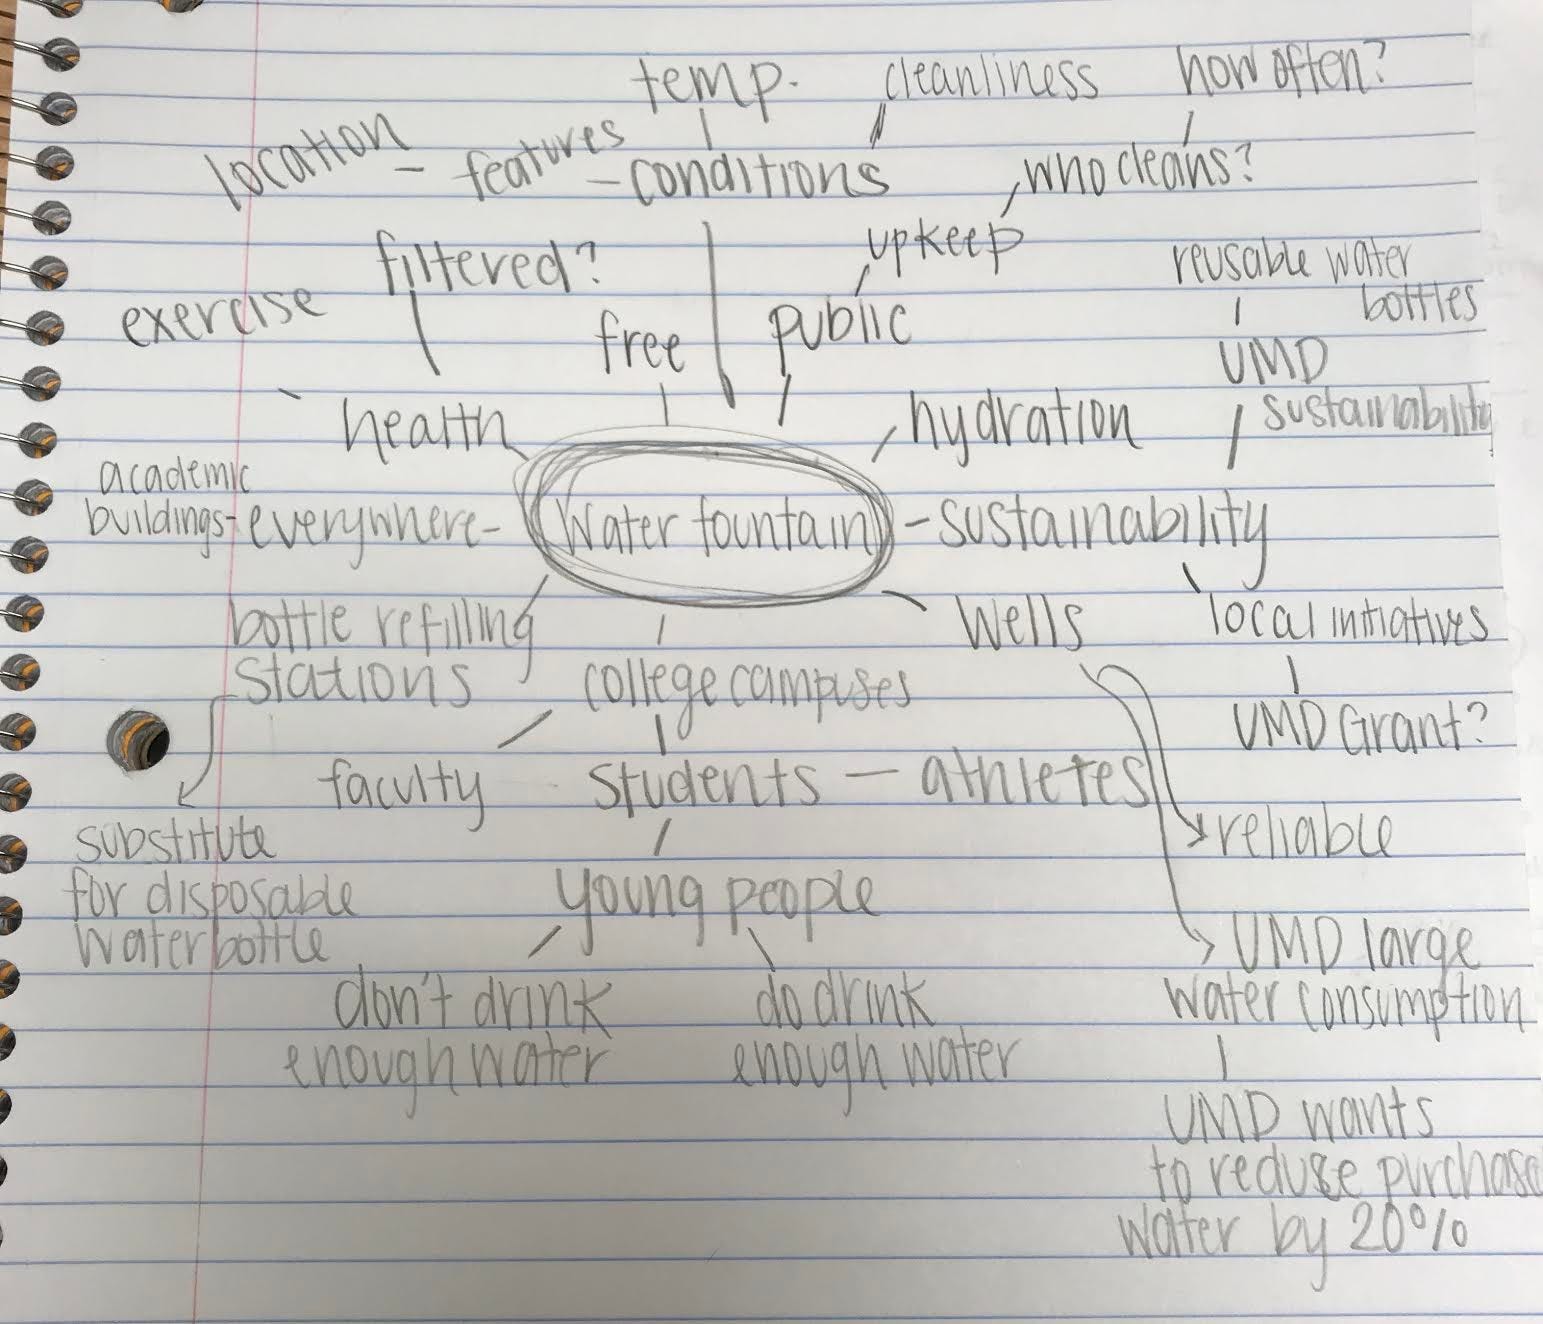 temp. cleanliness how often?
location - features - conditions
who cleans?
upkeep
filtered?
reusable water
bottles
exercise
free
public
UMD
sustainability
health
hydration
academic
buildings - everywhere - Water fountain - sustainability
bottle refilling
stations
college campuses
wells
local initiatives
UMD Grant?
faculty students — athletes
substitute
for disposable
water bottle
reliable
young people
UMD large
water consumption
don't drink
enough water
do drink
enough water
UMD wants
to reduse purchase
water by 20%